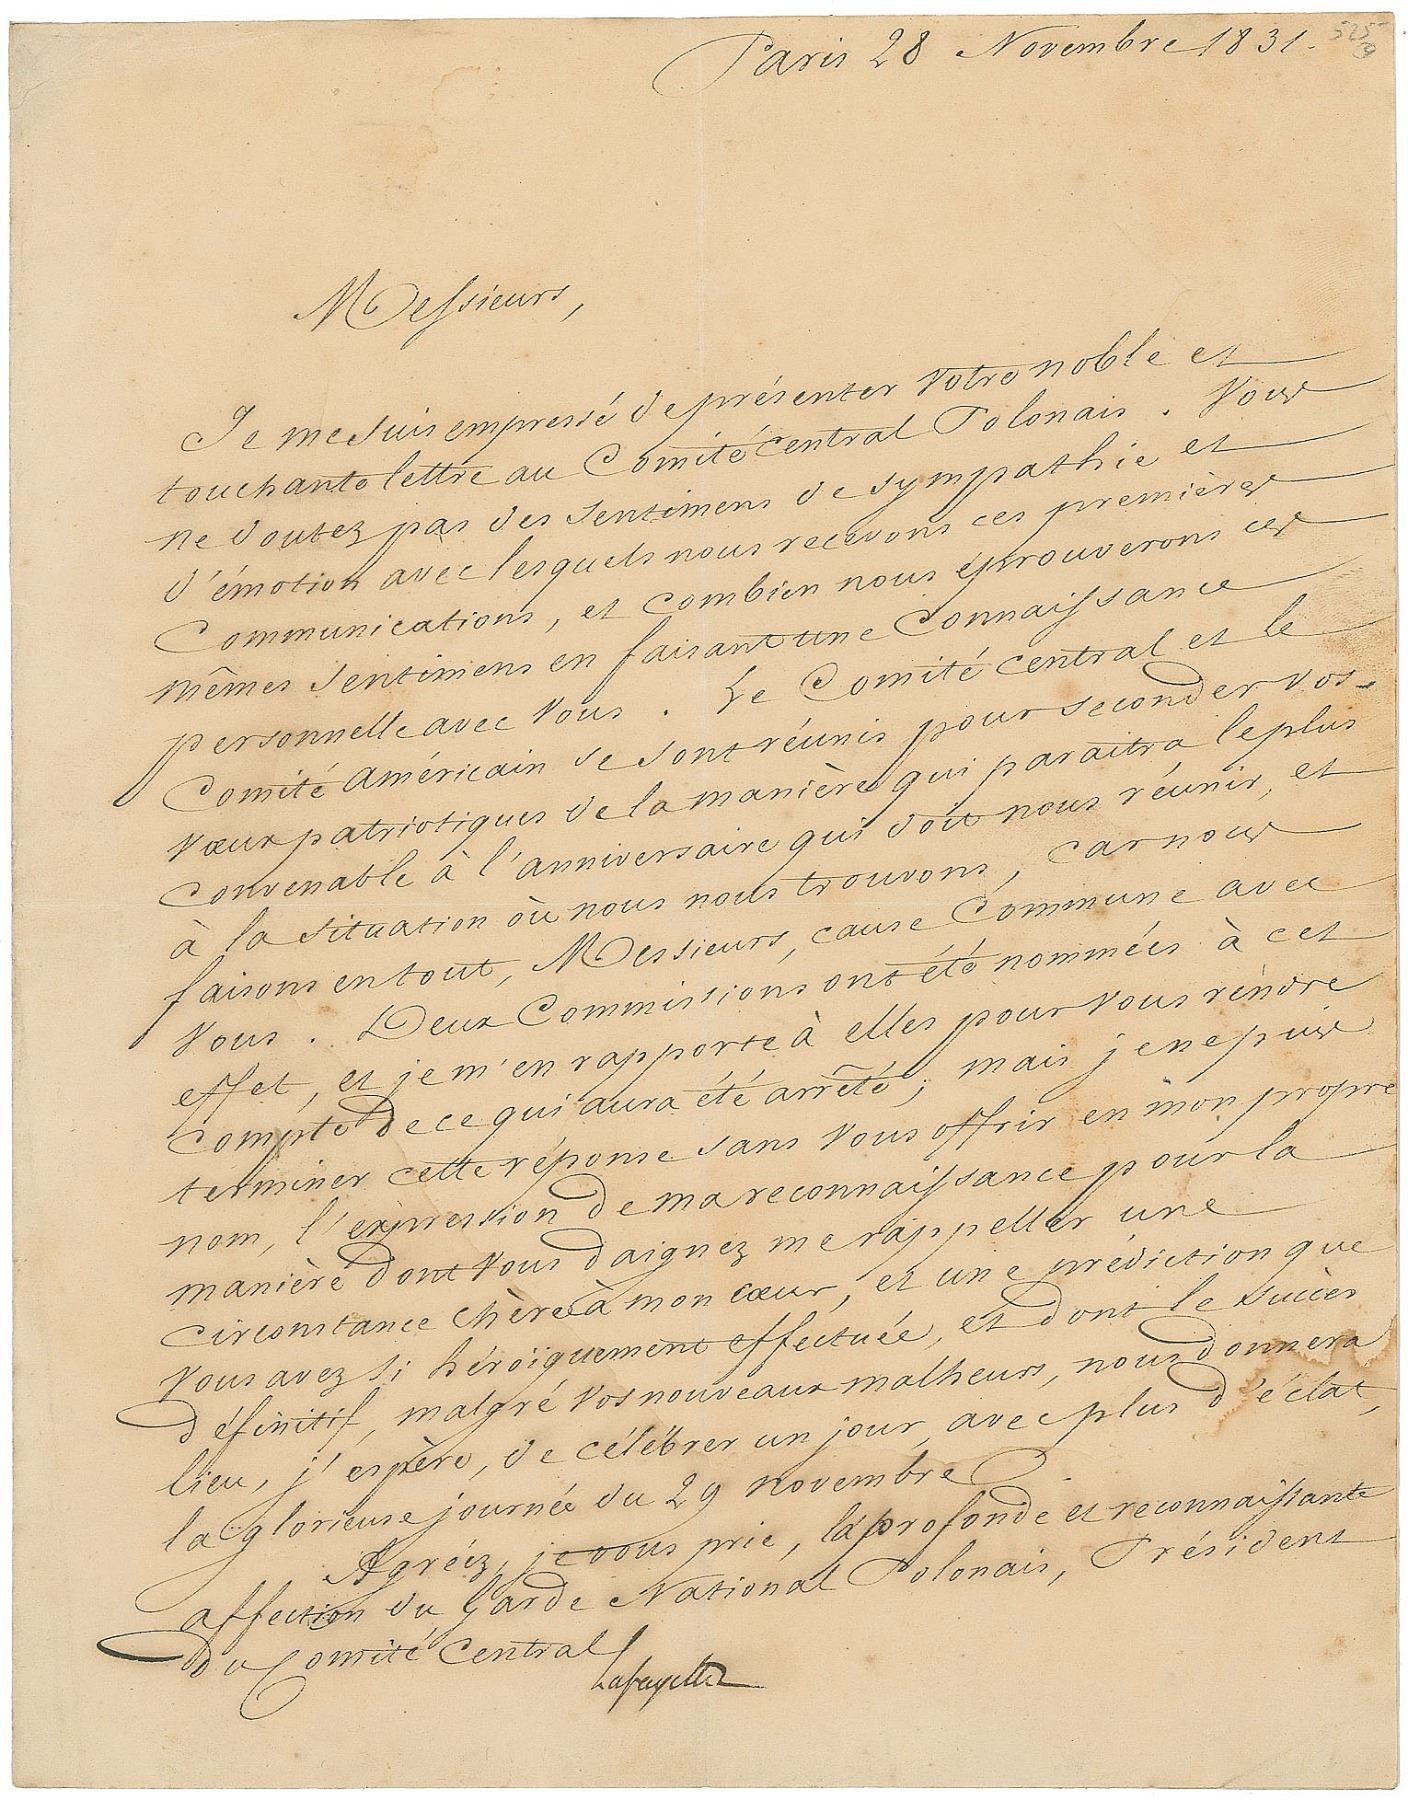 Paris 28 Novembre 1831.
525
Messieurs,
Je me suis empressé de présenter votre noble et
touchante lettre au Comité central Polonais. Vous
ne doutez pas des sentimens de sympathie et
d'émotion avec lesquels nous recevons ces premières
Communications, et combien nous éprouverons ces
mêmes sentimens en faisant une Connaissance
personnelle avec Vous. Le Comité central et le
Comité américain se sont réunis pour seconder vos
vœux patriotiques de la manière qui paraitra le plus
convenable à l'anniversaire qui doit nous réunir, et
à la situation où nous nous trouvons, car nous
faisons en tout, Messieurs, cause Commune avec
Vous. Deux Commissions ont été nommées à cet
effet, et je m'en rapporte à elles pour vous rendre
compte de ce qui aura été arrêté; mais je ne puis
terminer cette réponse sans vous offrir en mon propre
nom, l'expression de ma reconnaissance pour la
manière dont vous daignez me rappeller une
circonstance chère à mon cœur, et une prédiction que
vous avez si héroïquement effectuée, et dont le succès
définitif, malgré vos nouveaux malheurs, nous donnera
lieu, j'espère, de célébrer un jour, avec plus d'éclat,
la glorieuse journée du 29 novembre.
Agréez, je vous prie, la profonde et reconnaissante
affection du Garde National Polonais, Président
du Comité Central
Lafayette